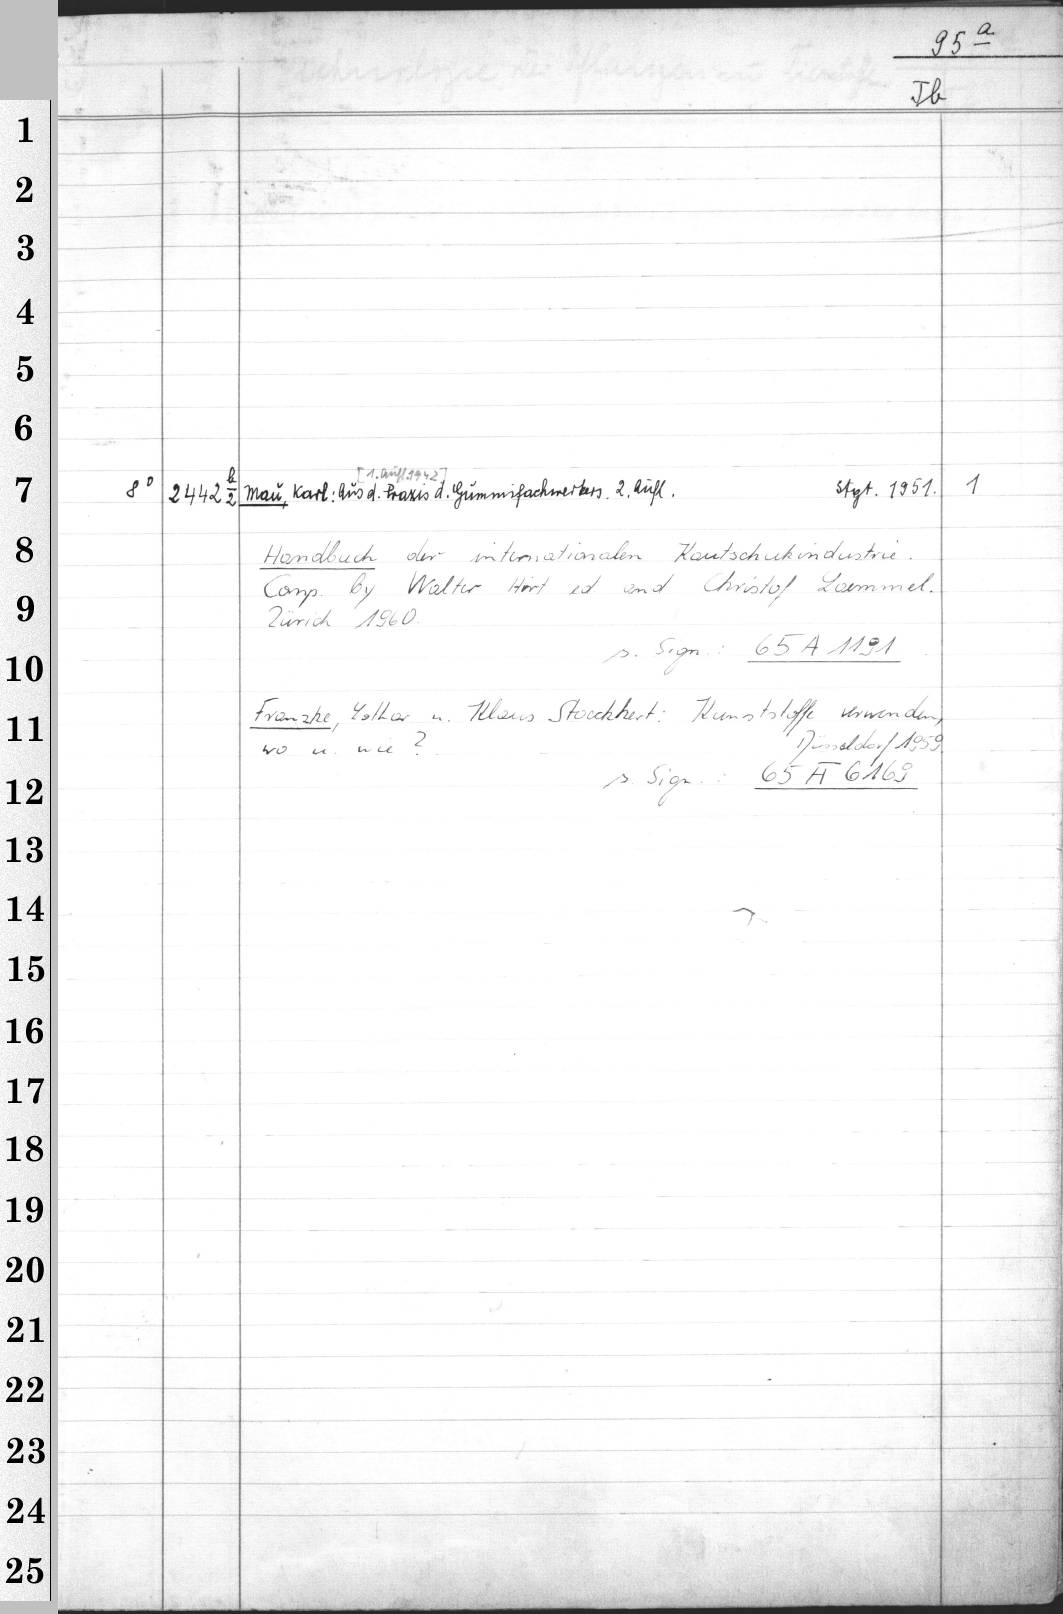 95 a
Ib
1
2
3
4
5
6
[1. Aufl. 1942]
7 8° 2442 b/2 Mau, Karl: Aus d. Praxis d. Gummifachwerkers. 2. Aufl. Stgt. 1951. 1
8 Handbuch der internationalen Kautschukindustrie.
9 Comp. by Walter Hört ed and Christof Laemmel.
Zürich 1960.
10 s. Sign.: 65 A 1191
11 Franzke, Lothar u. Klaus Stoeckhert: Kunststoffe verwenden,
wo u. wie? Düsseldorf 1959.
12 s. Sign.: 65 A 6169
13
14
15
16
17
18
19
20
21
22
23
24
25